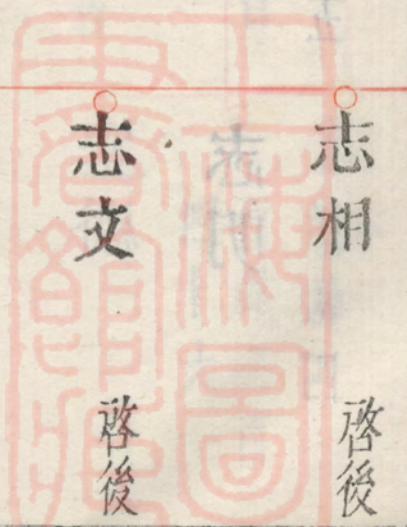 志相
啓後
志文
啓後